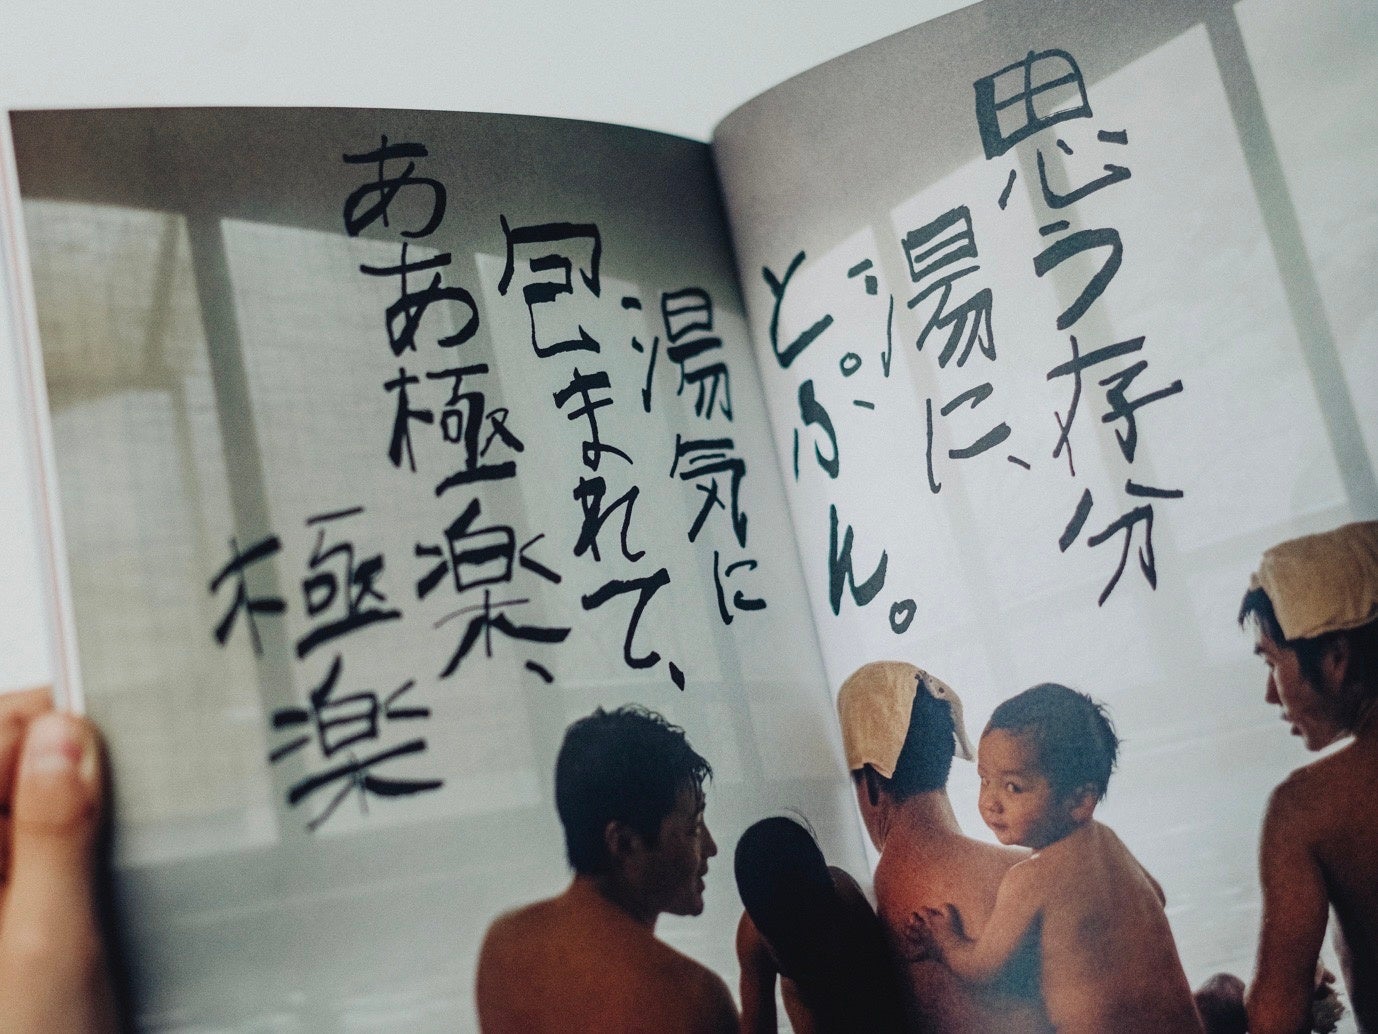 思う存分
湯に、
どぷん。
湯気に
包まれて、
ああ極楽、
極楽